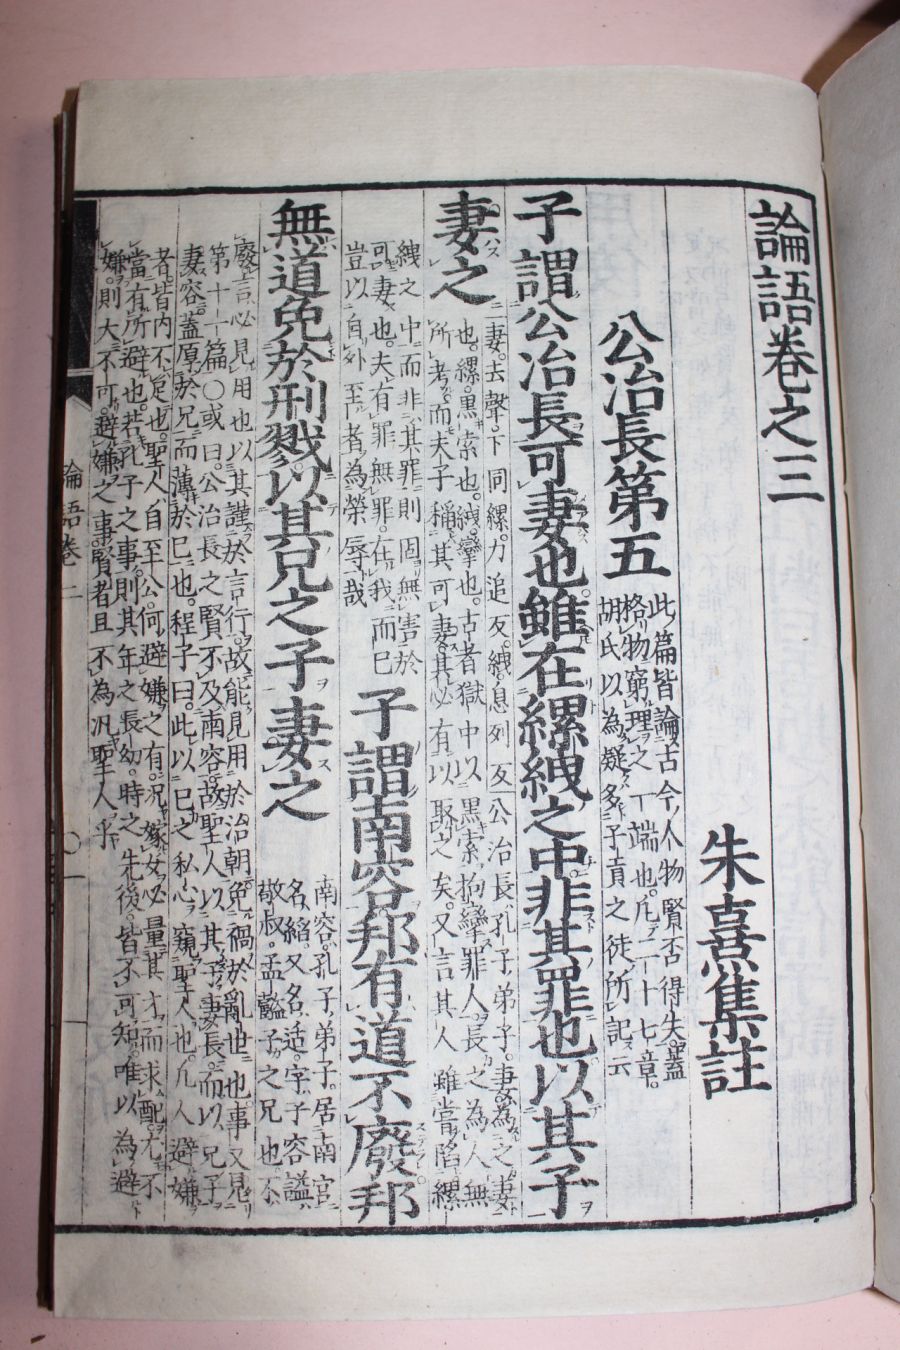 論語卷之三
朱熹集註
公冶長第五
此篇皆論古今人物賢否得失蓋
格物窮理之一端也凡二十七章
胡氏以為疑多子貢之徒所記云
子謂公冶長可妻也雖在縲絏之中非其罪也以其子
妻之
妻去聲下同縲力追反絏息列反公冶長孔子弟子妻為之妻
也縲黑索也絏攣也古者獄中以黑索拘攣罪人長之為人無
所考而夫子稱其可妻其必有以取之矣又言其人雖嘗陷縲
絏之中而非其罪則固無害於
可妻也夫有罪無罪在我而已
豈以自外至者為榮辱哉
子謂南容邦有道不廢邦
無道免於刑戮以其兄之子妻之
南容孔子弟子居南宮
名縚又名适字子容謚
敬叔孟懿子之兄也不
廢言必見用也以其謹於言行故能見用於治朝免禍於亂世也事又見
第十一篇○或曰公冶長之賢不及南容故聖人以其子妻長而以兄子
妻容蓋厚於兄而薄於己也程子曰此以己之私心窺聖人也凡人避嫌
者皆內不足也聖人自至公何避嫌之有況嫁女必量其才而求配尤不
當有所避也若孔子之事則其年之長幼時之先後皆不可知唯以為避
嫌則大不可避嫌之事賢者且不為況聖人乎
論語卷三
○一